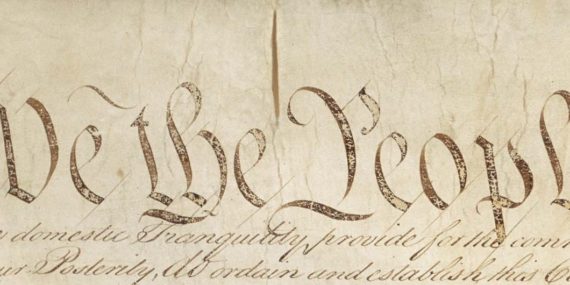 We the People
domestic Tranquility, provide for the com
our Posterity, do ordain and establish this